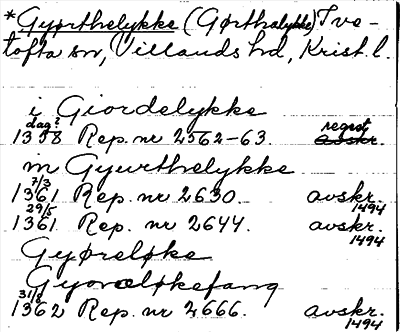 *Gyørthelykke (Gørthalykke) Tve-
tofta sn, Villands hd, Krist. l.
i Giordelykke
dag?
1358 Rep. nr 2562-63. regest
m Gyurthelykke
7/3
1361 Rep. nr 2630. avskr. 1494
29/5
1361. Rep. nr 2644. avskr. 1494
Gyøreløke
Gyoræløkefang
31/8
1362 Rep. nr 2666. avskr. 1494